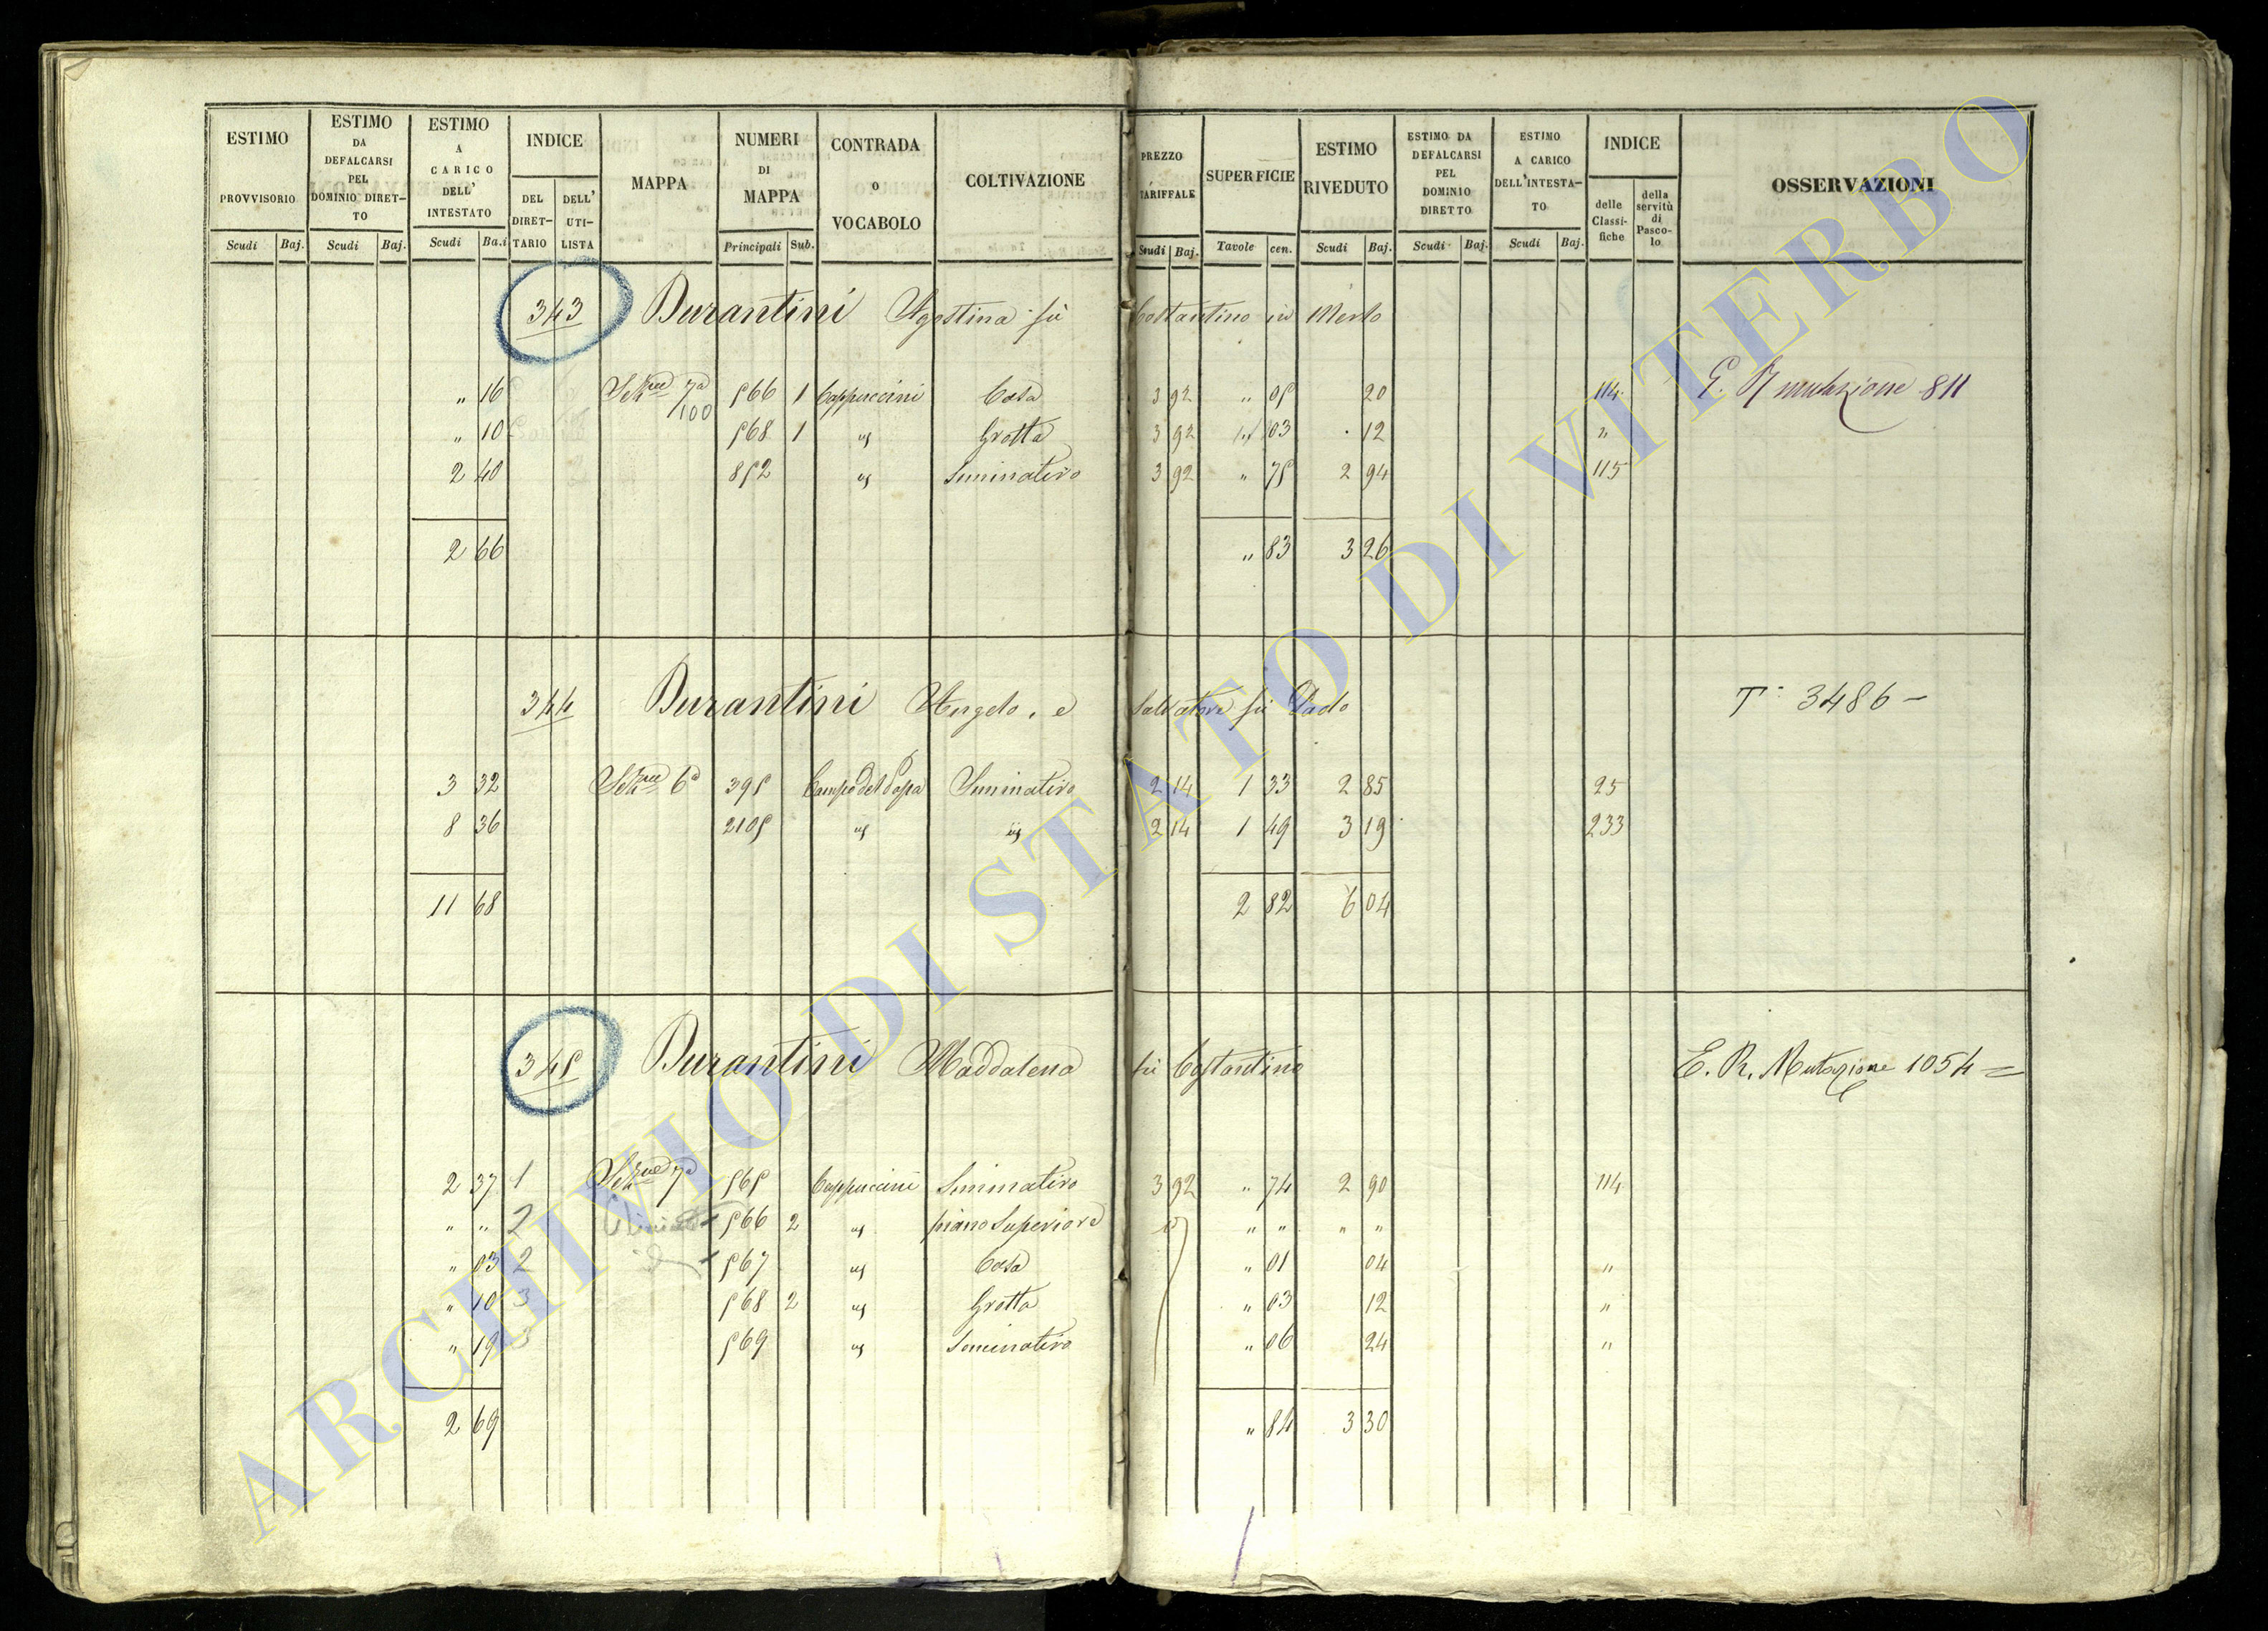 ESTIMO PROVVISORIO Scudi Baj.
ESTIMO DA DEFALCARSI PEL DOMINIO DIRET-TO Scudi Baj.
ESTIMO A CARICO DELL' INTESTATO Scudi Ba.i
INDICE DEL DIRET-TARIO DELL' UTI-LISTA
MAPPA
NUMERI DI MAPPA Principali Sub.
CONTRADA o VOCABOLO
COLTIVAZIONE
PREZZO TARIFFALE Scudi Baj.
SUPERFICIE Tavole cen.
ESTIMO RIVEDUTO Scudi Baj.
ESTIMO DA DEFALCARSI PEL DOMINIO DIRETTO Scudi Baj.
ESTIMO A CARICO DELL'INTESTA-TO Scudi Baj.
INDICE delle Classi-fiche della servitù di Pasco-lo
OSSERVAZIONI
343 Burantini Agostina fù Costantino in Merlo
„ 16 Sezne 7a 566 1 Cappuccini Casa 3 92 „ 05 20 114 E. R mutazione 811
100
„ 10 568 1 „ Grotta 3 92 03 12 „
2 40 852 „ Seminativo 3 92 „ 75 2 94 115
2 66 „ 83 3 26
344 Burantini Angelo, e Salvatore fù Paolo T. 3486 -
3 32 Sezne 6a 395 Campo del Papa Seminativo 2 14 1 33 2 85 25
8 36 2105 „ „ 2 14 1 49 3 19 233
11 68 2 82 6 04
345 Burantini Maddalena fù Costantino E. R. Mutazione 1054 =
2 37 1 Sezne 7a 565 Cappuccini Seminativo 3 92 „ 74 2 90 114
„ „ 2 566 2 „ piano Superiore id „ „ „ „
„ 03 2 567 „ Casa „ 01 04 „
„ 10 3 568 2 „ Grotta „ 03 12 „
„ 19 3 569 „ Seminativo „ 06 24 „
2 69 „ 84 3 30
ARCHIVIO DI STATO DI VITERBO